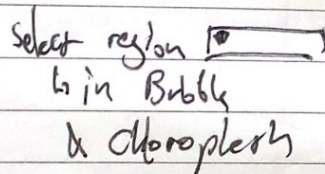 Select region
↳ in Bubble
& Choropleth